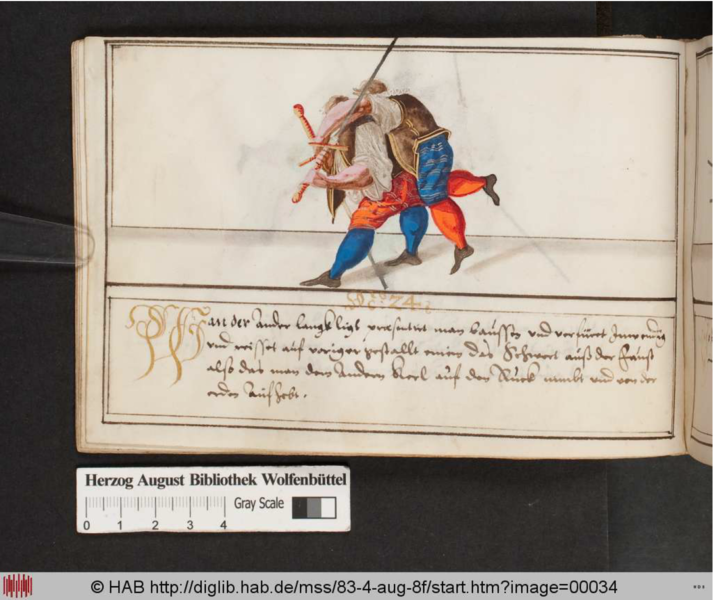 74
Wan der Ander lang ligt presentirt man haussen und
und reisset auf voriger gestallt einen das Schwert auß der Faust
also das man dem Andern Kerl auf den Ruck nimbt und von der
erden Aufhebt.
Herzog August Bibliothek Wolfenbüttel
Gray Scale
0 1 2 3 4
© HAB http://diglib.hab.de/mss/83-4-aug-8f/start.htm?image=00034